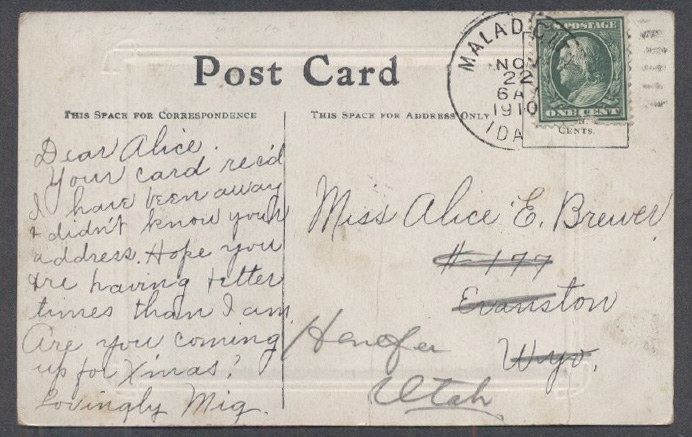 Post Card
THIS SPACE FOR CORRESPONDENCE
THIS SPACE FOR ADDRESS ONLY
MALAD CITY
NOV
22
6 A
1910
IDA
U.S. POSTAGE
ONE CENT
CENTS.
Dear Alice.
Your card rec'd
I have been away
& didn't know your
address. Hope you
are having better
times than I am
Are you coming
up for Xmas?
Lovingly Mig.
Miss Alice E. Brewer
# 177
Evanston
Wyo.
Henefer
Utah